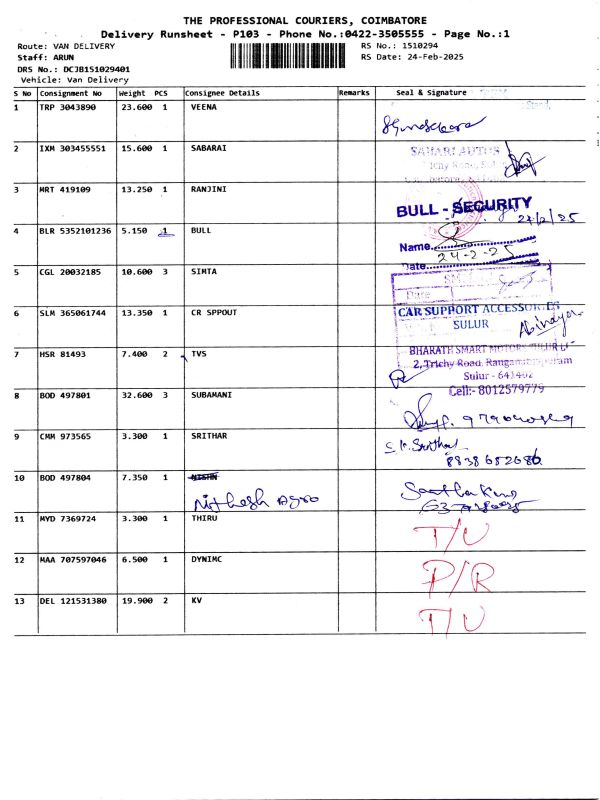 THE PROFESSIONAL COURIERS, COIMBATORE
Delivery Runsheet - P103 - Phone No.:0422-3505555 - Page No.:1
Route: VAN DELIVERY RS No.: 1510294
Staff: ARUN RS Date: 24-Feb-2025
DRS No.: DCJB151029401
Vehicle: Van Delivery
S No Consignment No Weight PCS Consignee Details Remarks Seal & Signature
1 TRP 3043890 23.600 1 VEENA
2 IXM 303455551 15.600 1 SABARAI
3 MRT 419109 13.250 1 RANJINI
BULL - SECURITY
24/2/25
4 BLR 5352101236 5.150 1 BULL
Name
Date 24-2-25
5 CGL 20032185 10.600 3 SIMTA
Date
6 SLM 365061744 13.350 1 CR SPPOUT
CAR SUPPORT ACCESSORIES
SULUR
Abinaya
7 HSR 81493 7.400 2 TVS
BHARATH SMART MOTORS
2, Trichy Road,
Sulur - 641402
Cell:- 8012579779
8 BOD 497801 32.600 3 SUBAMANI
9 CMM 973565 3.300 1 SRITHAR
S. K. Srithar
8838652686
10 BOD 497804 7.350 1 NISHN
Nithesh Agro
11 MYD 7369724 3.300 1 THIRU T/U
12 MAA 707597046 6.500 1 DYNIMC P/R
13 DEL 121531380 19.900 2 KV T/U